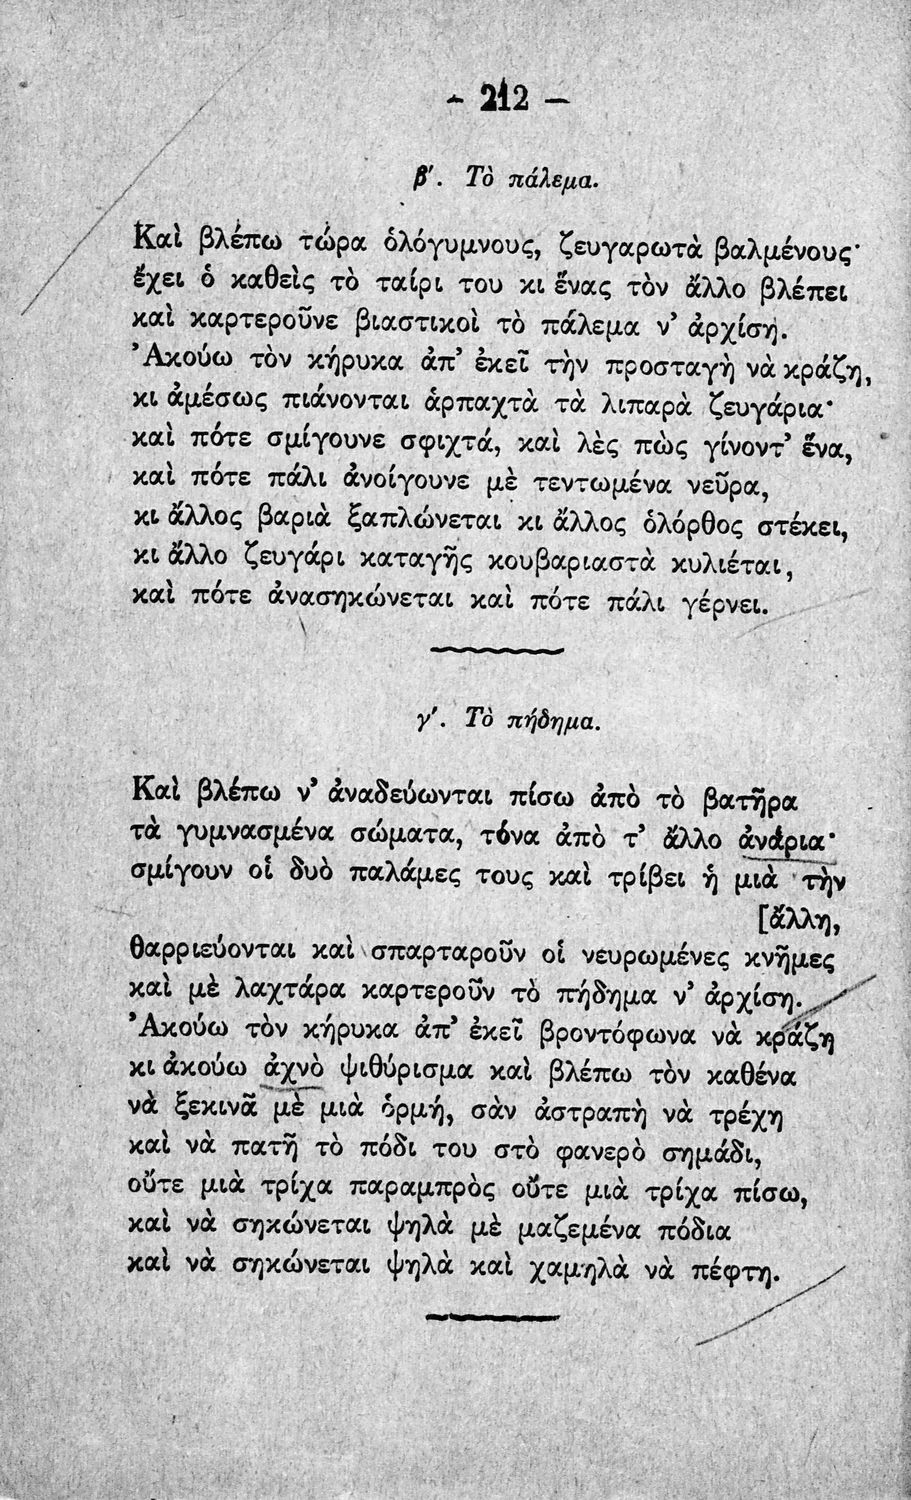 - 212 -
β'. Τὸ πάλεμα.
Καὶ βλέπω τώρα ὁλόγυμνους, ζευγαρωτὰ βαλμένους·
ἔχει ὁ καθεὶς τὸ ταίρι του κι ἕνας τὸν ἄλλο βλέπει
καὶ καρτεροῦνε βιαστικοὶ τὸ πάλεμα ν' ἀρχίσῃ.
Ἀκούω τὸν κήρυκα ἀπ' ἐκεῖ τὴν προσταγὴ νὰ κράζῃ,
κι ἀμέσως πιάνονται ἁρπαχτὰ τὰ λιπαρὰ ζευγάρια·
καὶ πότε σμίγουνε σφιχτά, καὶ λὲς πὼς γίνοντ' ἕνα,
καὶ πότε πάλι ἀνοίγουνε μὲ τεντωμένα νεῦρα,
κι ἄλλος βαριὰ ξαπλώνεται κι ἄλλος ὁλόρθος στέκει,
κι ἄλλο ζευγάρι καταγῆς κουβαριαστὰ κυλιέται,
καὶ πότε ἀνασηκώνεται καὶ πότε πάλι γέρνει.
γ'. Τὸ πήδημα.
Καὶ βλέπω ν' ἀναδεύωνται πίσω ἀπὸ τὸ βατῆρα
τὰ γυμνασμένα σώματα, τόνα ἀπὸ τ' ἄλλο ἀνάρια·
σμίγουν οἱ δυὸ παλάμες τους καὶ τρίβει ἡ μιὰ τὴν
[ἄλλη,
θαρριεύονται καὶ σπαρταροῦν οἱ νευρωμένες κνῆμες
καὶ μὲ λαχτάρα καρτεροῦν τὸ πήδημα ν' ἀρχίσῃ.
Ἀκούω τὸν κήρυκα ἀπ' ἐκεῖ βροντόφωνα νὰ κράζῃ
κι ἀκούω ἀχνὸ ψιθύρισμα καὶ βλέπω τὸν καθένα
νὰ ξεκινᾶ μὲ μιὰ ὁρμή, σὰν ἀστραπὴ νὰ τρέχῃ
καὶ νὰ πατῇ τὸ πόδι του στὸ φανερὸ σημάδι,
οὔτε μιὰ τρίχα παραμπρὸς οὔτε μιὰ τρίχα πίσω,
καὶ νὰ σηκώνεται ψηλὰ μὲ μαζεμένα πόδια
καὶ νὰ σηκώνεται ψηλὰ καὶ χαμηλὰ νὰ πέφτῃ.